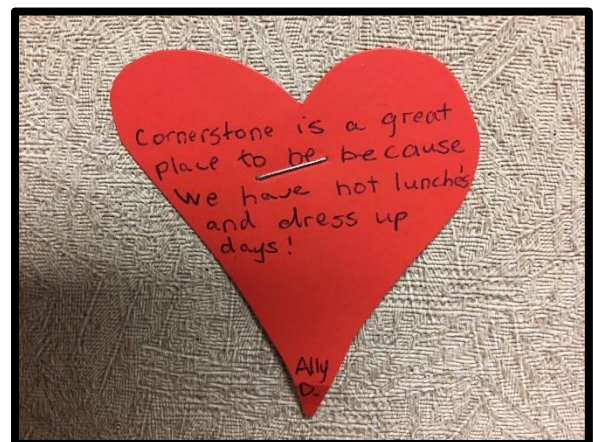 Cornerstone is a great
place to be because
we have hot lunche's
and dress up
days!
Ally
D.